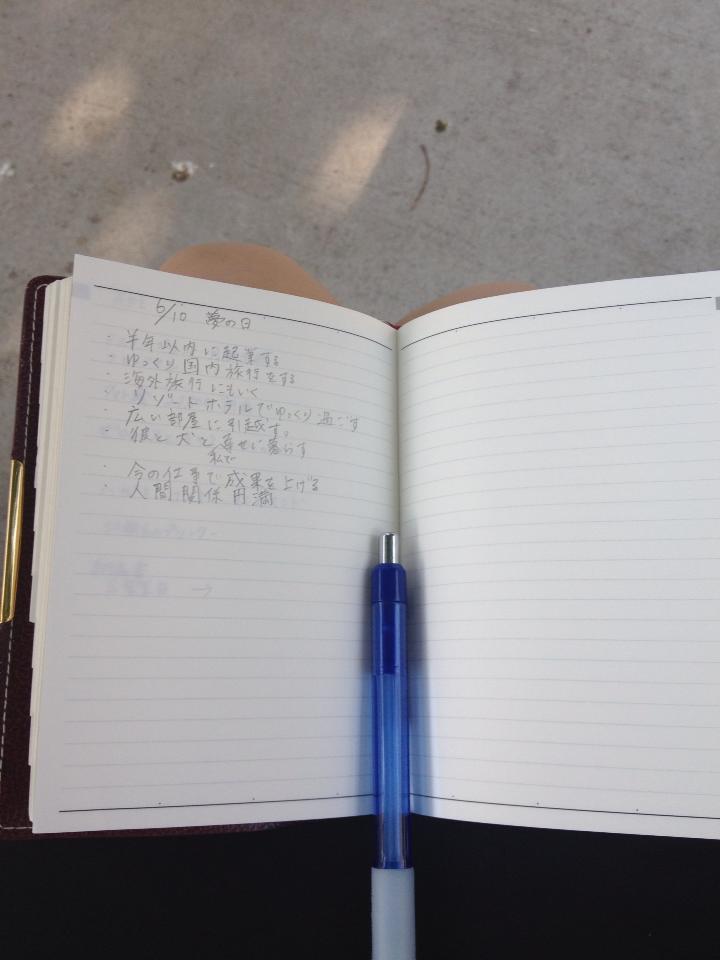 6/10 夢の日
・半年以内に起業する
・ゆっくり国内旅行をする
・海外旅行にもいく
リゾートホテルでゆっくり過ごす
・広い部屋に引越す。
・彼と犬と幸せに暮らす
私で
・今の仕事で成果を上げる
・人間関係円満